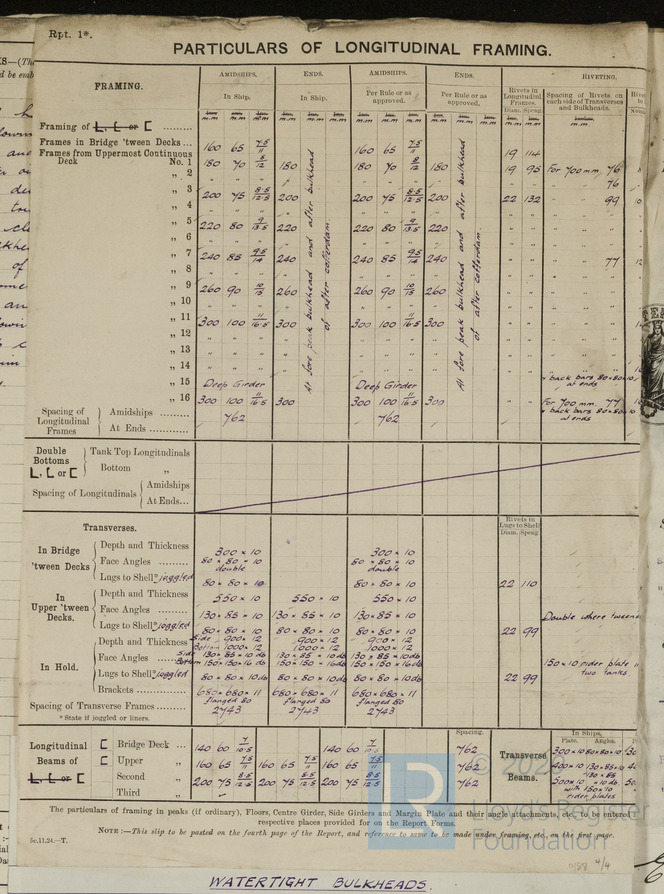 Rpt. 1*.
PARTICULARS OF LONGITUDINAL FRAMING.
FRAMING. AMIDSHIPS. ENDS. AMIDSHIPS. ENDS. RIVETING.
In Ship. In Ship. Per Rule or as approved. Per Rule or as approved. Rivets in Longitudinal Frames. Spacing of Rivets on each side of Transverses and Bulkheads.
Diam. Spcng
Framing of L, L or [
Frames in Bridge 'tween Decks ... 160 65 7.5/11 160 65 7.5/11 19 114
Frames from Uppermost Continuous
Deck No. 1 180 70 8/12 180 180 70 8/12 180 19 95 For 700mm. 76
„ 2 76
„ 3 200 75 8.5/12.5 200 200 75 8.5/12.5 200 22 132 99
„ 4
„ 5 220 80 9/13.5 220 220 80 9/13.5 220
„ 6
„ 7 240 85 9.5/14 240 240 85 9.5/14 240 77
„ 8
„ 9 260 90 10/15 260 260 90 10/15 260
„ 10
„ 11 300 100 11/16.5 300 300 100 11/16.5 300
„ 12
„ 13
„ 14
„ 15 Deep Girder Deep Girder + back bars 80×80×10 at ends
„ 16 300 100 11/16.5 300 300 100 11/16.5 300 For 700 mm. 77
+ back bars 80×80×10 at ends
At fore peak bulkhead and after bulkhead of after cofferdam.
At fore peak bulkhead and after bulkhead of after cofferdam.
Spacing of Longitudinal Frames
Amidships 762 762
At Ends
Double Bottoms L, L or [
Tank Top Longitudinals
Bottom „
Spacing of Longitudinals
Amidships
At Ends...
Transverses. Rivets in Lugs to Shell
Diam. Spcng
In Bridge 'tween Decks
Depth and Thickness 300 × 10 300 × 10
Face Angles 80 × 80 × 10 double 80 × 80 × 10 double
Lugs to Shell* joggled 80 × 80 × 10 80 × 80 × 10 22 110
In Upper 'tween Decks.
Depth and Thickness 550 × 10 550 × 10 550 × 10
Face Angles 130 × 85 × 10 130 × 85 × 10 130 × 85 × 10
Lugs to Shell* joggled 80 × 80 × 10 80 × 80 × 10 80 × 80 × 10 22 99
Double where tween
In Hold.
Depth and Thickness Side 900 × 12 900 × 12 900 × 12
Bottom 1000 × 12 1000 × 12 1000 × 12
Face Angles Side 130 × 85 × 10 db 130 × 85 × 10 db 130 × 85 × 10 db
Bottom 150 × 150 × 16 db 150 × 150 × 16 db 150 × 150 × 16 db 150 × 10 rider plate
two tanks.
Lugs to Shell* joggled 80 × 80 × 10 db 80 × 80 × 10 db 80 × 80 × 10 db 22 99
Brackets 680 × 680 × 11 flanged 80 680 × 680 × 11 flanged 80 680 × 680 × 11 flanged 80
Spacing of Transverse Frames 2743 2743 2743
* State if joggled or liners.
Longitudinal Beams of L, L or [
Spacing. In Ships.
Plate. Angles.
[ Bridge Deck ... 140 60 7/10.5 140 60 7/10.5 762
[ Upper „ 160 65 7.5/11 160 65 7.5/11 160 65 7.5/11 762
Second „ 200 75 8.5/12.5 200 75 8.5/12.5 200 75 8.5/12.5 762
Third „
Transverse Beams.
300×10 80×80×10
400×10 130×85×10
130×85
500×10 × 10 db.
with 150×10
rider plates
The particulars of framing in peaks (if ordinary), Floors, Centre Girder, Side Girders and Margin Plate and their angle attachments, etc., to be entered
respective places provided for on the Report Forms.
NOTE :—This slip to be posted on the fourth page of the Report, and reference to same to be made under framing, etc., on the first page.
5c.11.24.—T.
© 2020
Lloyd's Register
Foundation
0158 4/4
WATERTIGHT BULKHEADS.